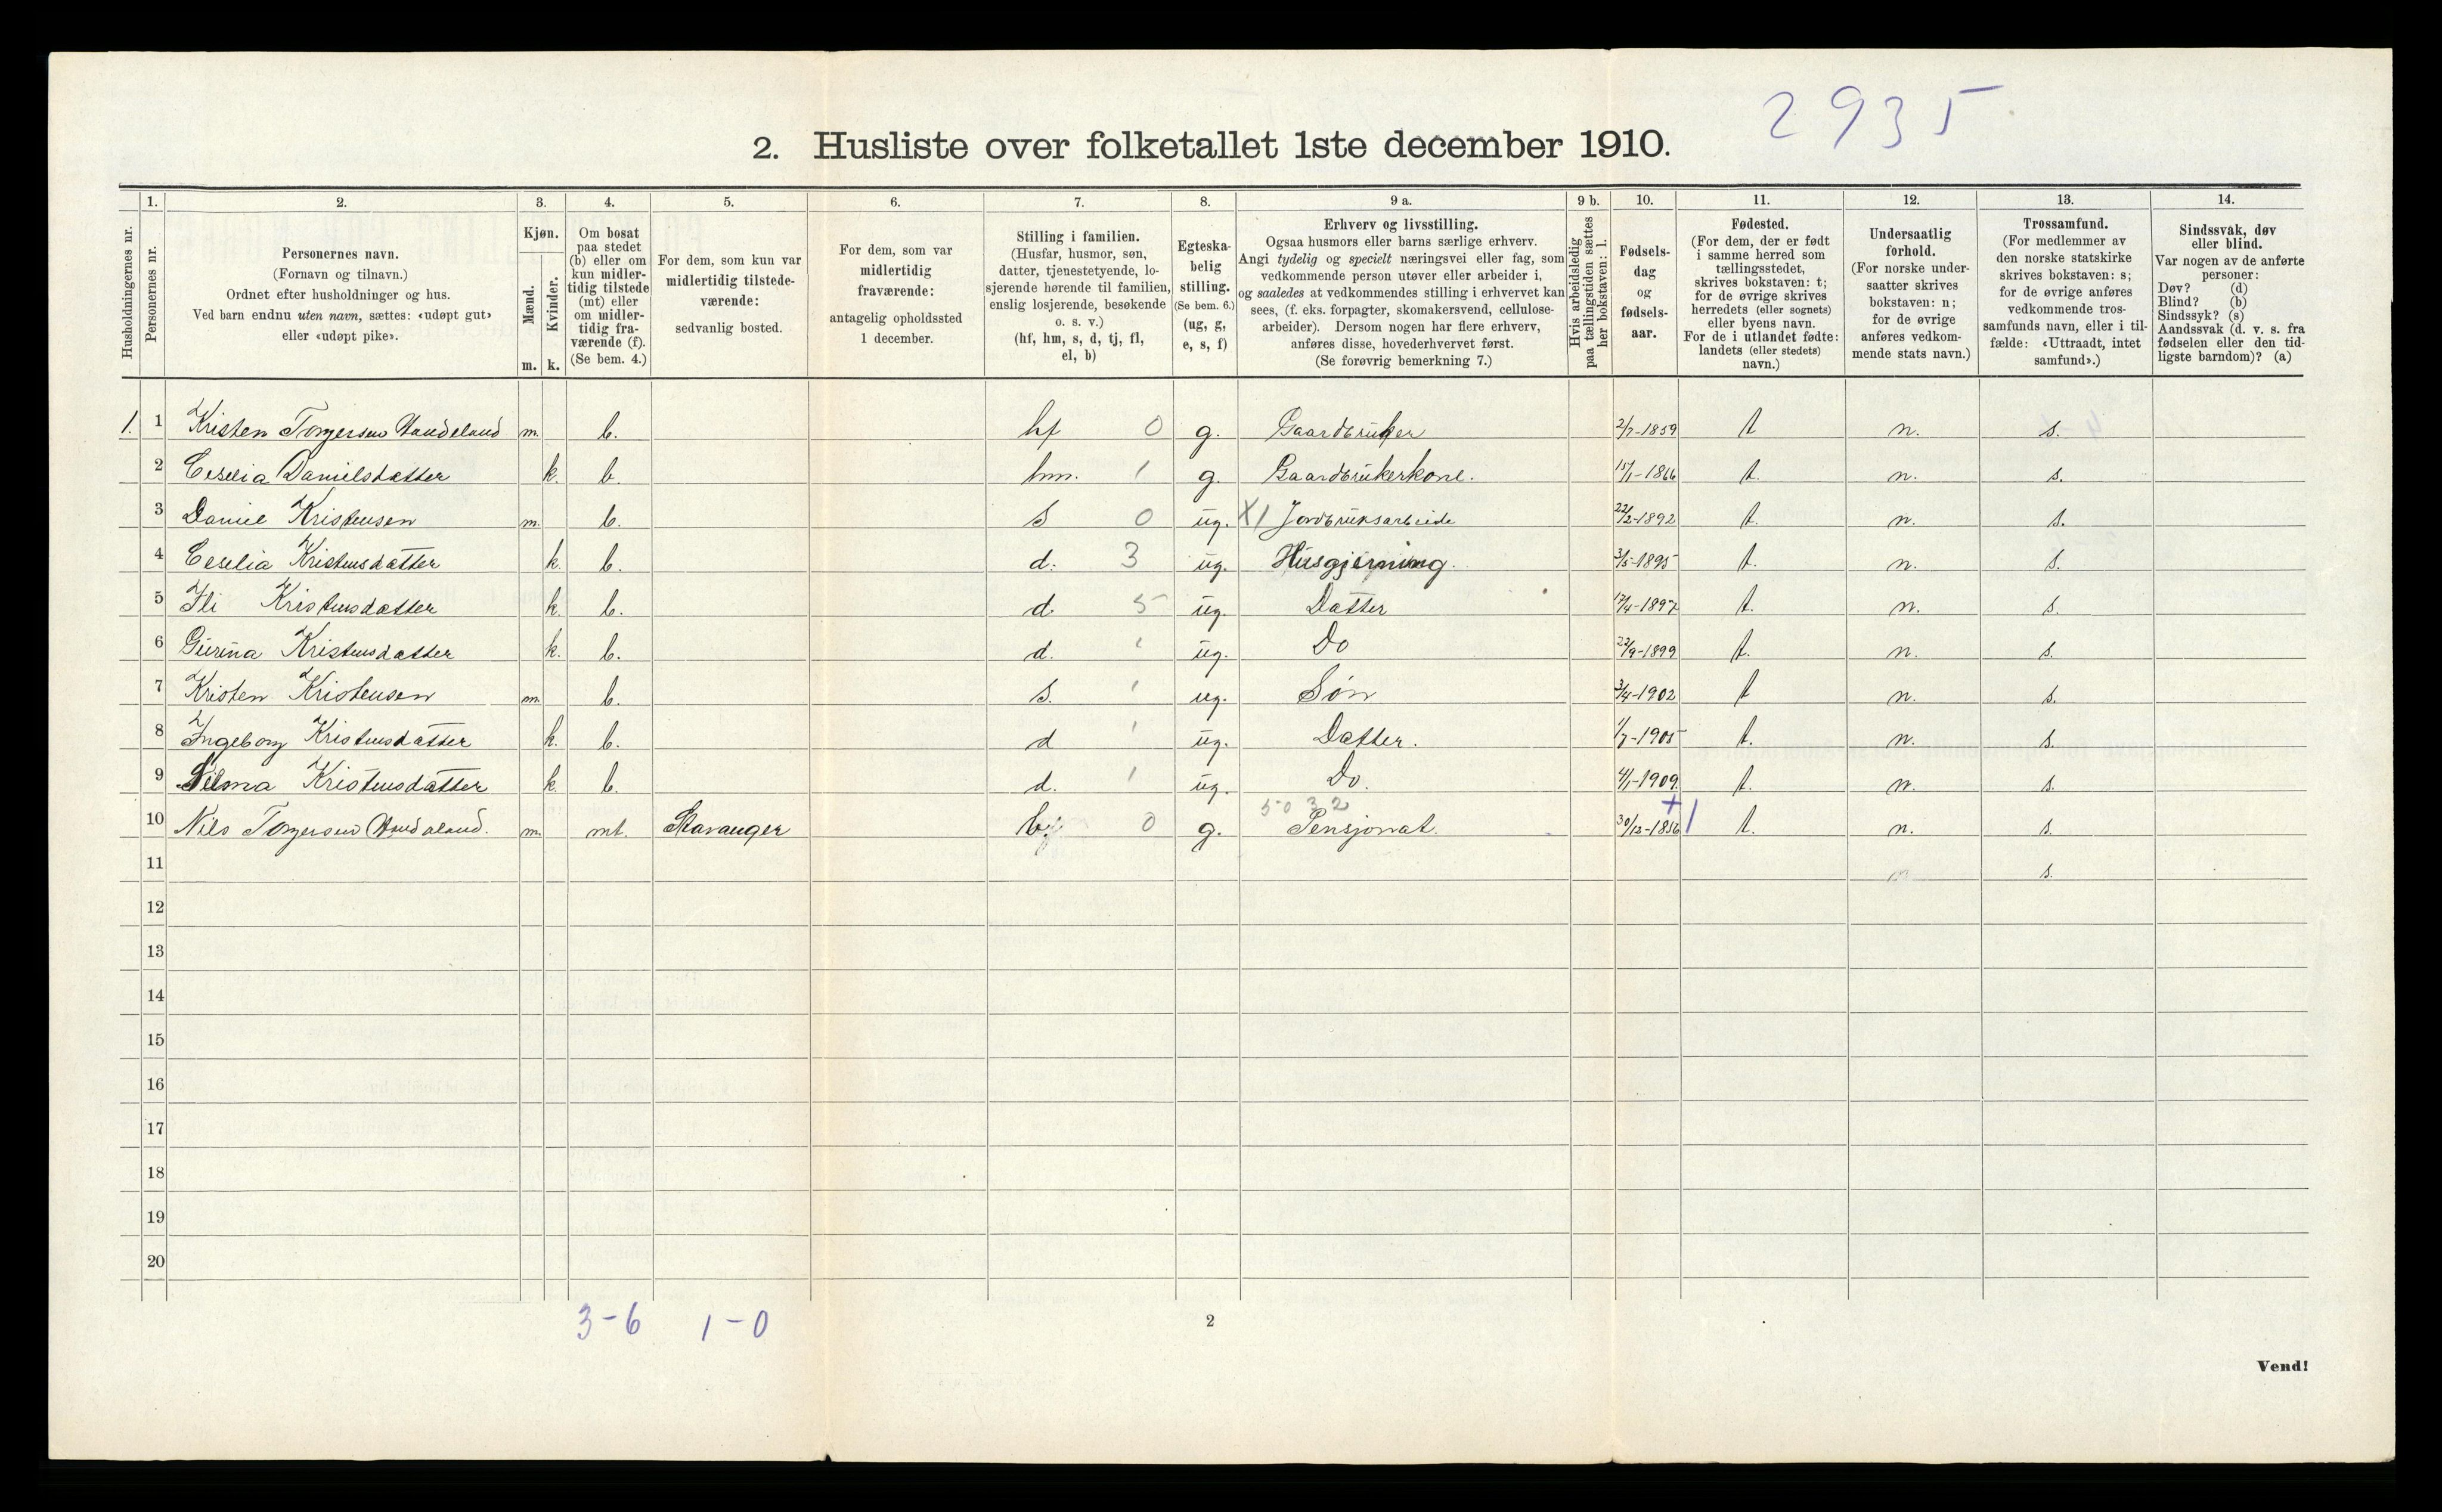 2935
2. Husliste over folketallet 1ste december 1910.
Husholdningernes nr.
1.
Personernes nr.
2.
Personernes navn.
(Fornavn og tilnavn.)
Ordnet efter husholdninger og hus.
Ved barn endnu uten navn, sættes: «udøpt gut»
eller «udøpt pike».
3.
Kjøn.
Mænd.
Kvinder.
m. k.
4.
Om bosat
paa stedet
(b) eller om
kun midler-
tidig tilstede
(mt) eller
om midler-
tidig fra-
værende (f).
(Se bem. 4.)
5.
For dem, som kun var
midlertidig tilstede-
værende:
sedvanlig bosted.
6.
For dem, som var
midlertidig
fraværende:
antagelig opholdssted
1 december.
7.
Stilling i familien.
(Husfar, husmor, søn,
datter, tjenestetyende, lo-
sjerende hørende til familien,
enslig losjerende, besøkende
o. s. v.)
(hf, hm, s, d, tj, fl,
el, b)
8.
Egteska-
belig
stilling.
(Se bem. 6.)
(ug, g,
e, s, f)
9 a.
Erhverv og livsstilling.
Ogsaa husmors eller barns særlige erhverv.
Angi tydelig og specielt næringsvei eller fag, som
vedkommende person utøver eller arbeider i,
og saaledes at vedkommendes stilling i erhvervet kan
sees, (f. eks. forpagter, skomakersvend, cellulose-
arbeider). Dersom nogen har flere erhverv,
anføres disse, hovederhvervet først.
(Se forøvrig bemerkning 7.)
9 b.
Hvis arbeidsledig
paa tællingstiden sættes
her bokstaven: l.
10.
Fødsels-
dag
og
fødsels-
aar.
11.
Fødested.
(For dem, der er født
i samme herred som
tællingsstedet,
skrives bokstaven: t;
for de øvrige skrives
herredets (eller sognets)
eller byens navn.
For de i utlandet fødte:
landets (eller stedets)
navn.)
12.
Undersaatlig
forhold.
(For norske under-
saatter skrives
bokstaven: n;
for de øvrige
anføres vedkom-
mende stats navn.)
13.
Trossamfund.
(For medlemmer av
den norske statskirke
skrives bokstaven: s;
for de øvrige anføres
vedkommende tros-
samfunds navn, eller i til-
fælde: «Uttraadt, intet
samfund».)
14.
Sindssvak, døv
eller blind.
Var nogen av de anførte
personer:
Døv? (d)
Blind? (b)
Sindssyk? (s)
Aandssvak (d. v. s. fra
fødselen eller den tid-
ligste barndom)? (a)
1. 1 Kristen Torgersen m. b. hf 0 g. Gaardbruker 2/7-1859 t n. s.
2 Ceselia Danielsdatter k. b. hm. 1 g. Gaardbrukerkone. 15/1-1866 t. n. s.
3 Daniel Kristensen m. b. s 0 ug. X1 Jordbruksarbeide 22/2-1892 t. n. s.
4 Ceselia Kristensdatter k. b. d. 3 ug. Husgjerning. 3/5-1895 t. n. s.
5 Ili Kristensdatter k. b. d. 5 ug. Datter 17/4-1897 t. n. s.
6 Gurina Kristensdatter k. b. d. ug. Do 22/9-1899 t. n. s.
7 Kristen Kristensen m. b. s. ug. Søn 3/4-1902 t n. s.
8 Ingeborg Kristensdatter k. b. d ug. Datter. 1/7-1905 t. n. s.
9 Kristensdatter k. b. d. ug. Do. 4/1-1909. t. n. s.
5032
10 Nils Torgersen m. mt. Stavanger b. 0 g. Pensjonat. 30/12-1856 t. n. s.
11 s.
12
13
14
15
16
17
18
19
20
3-6 1-0
2
Vend!